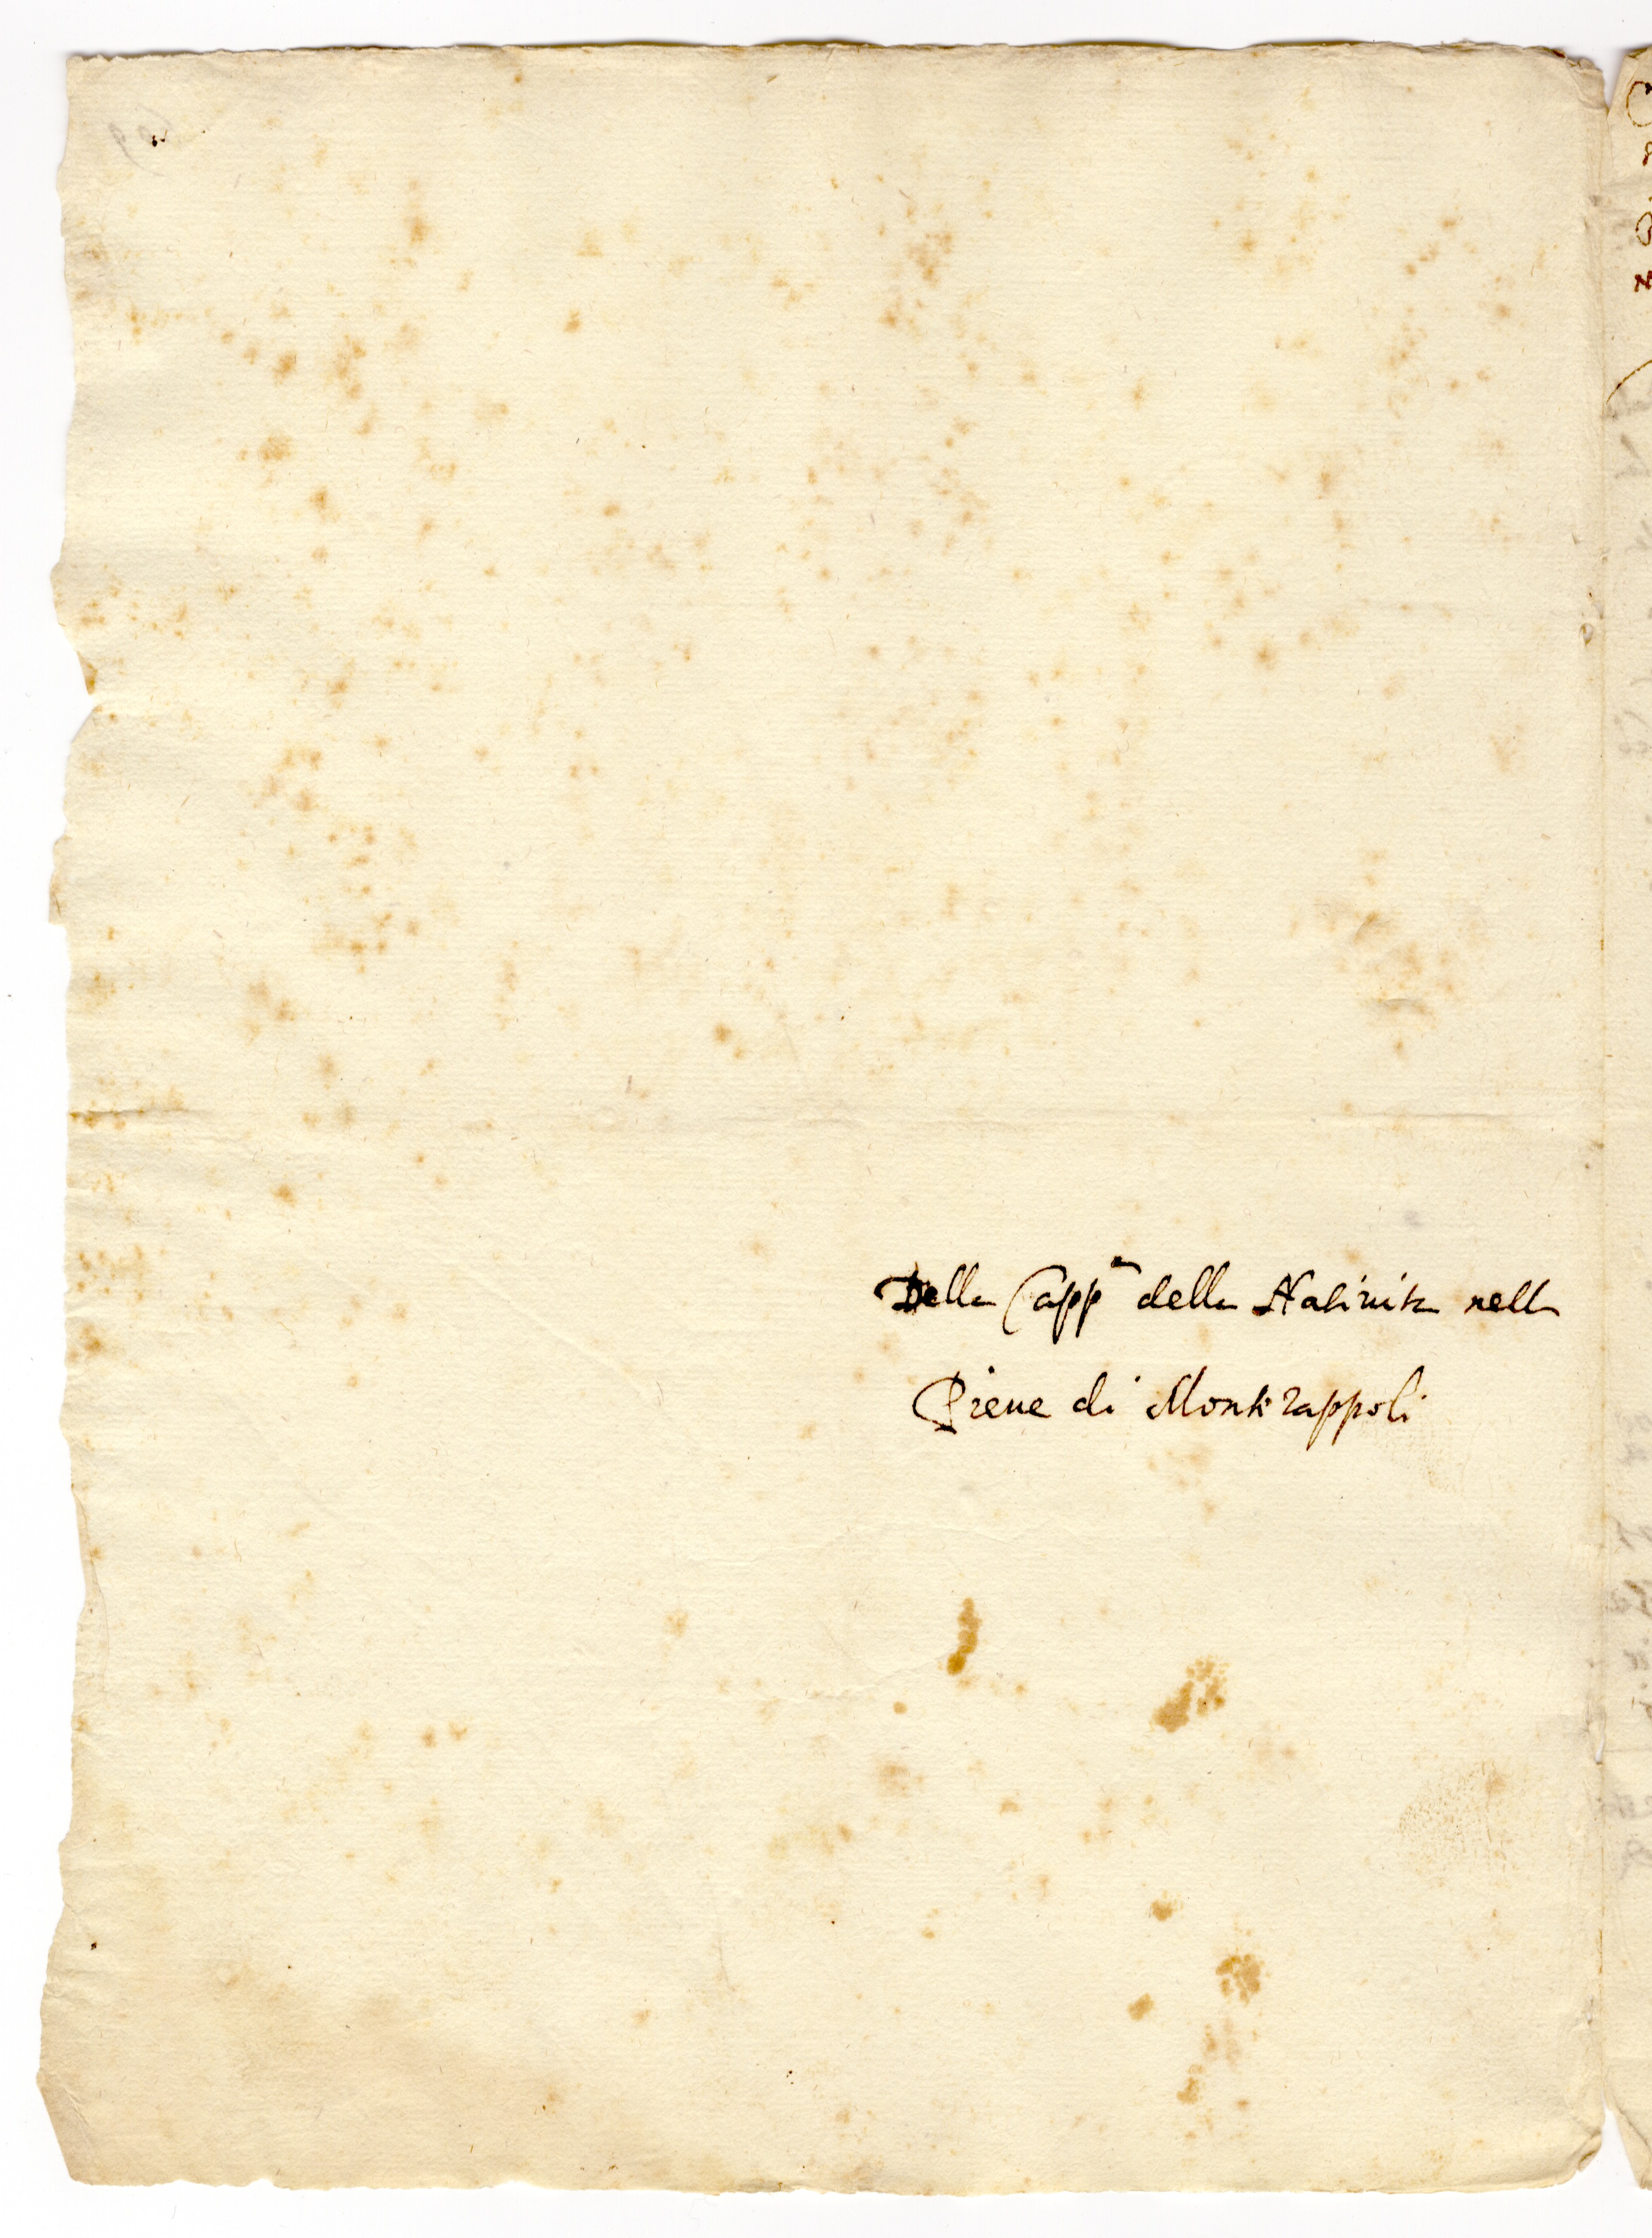 Della Capp^a della Natiuita nella
Pieue di Monterappoli